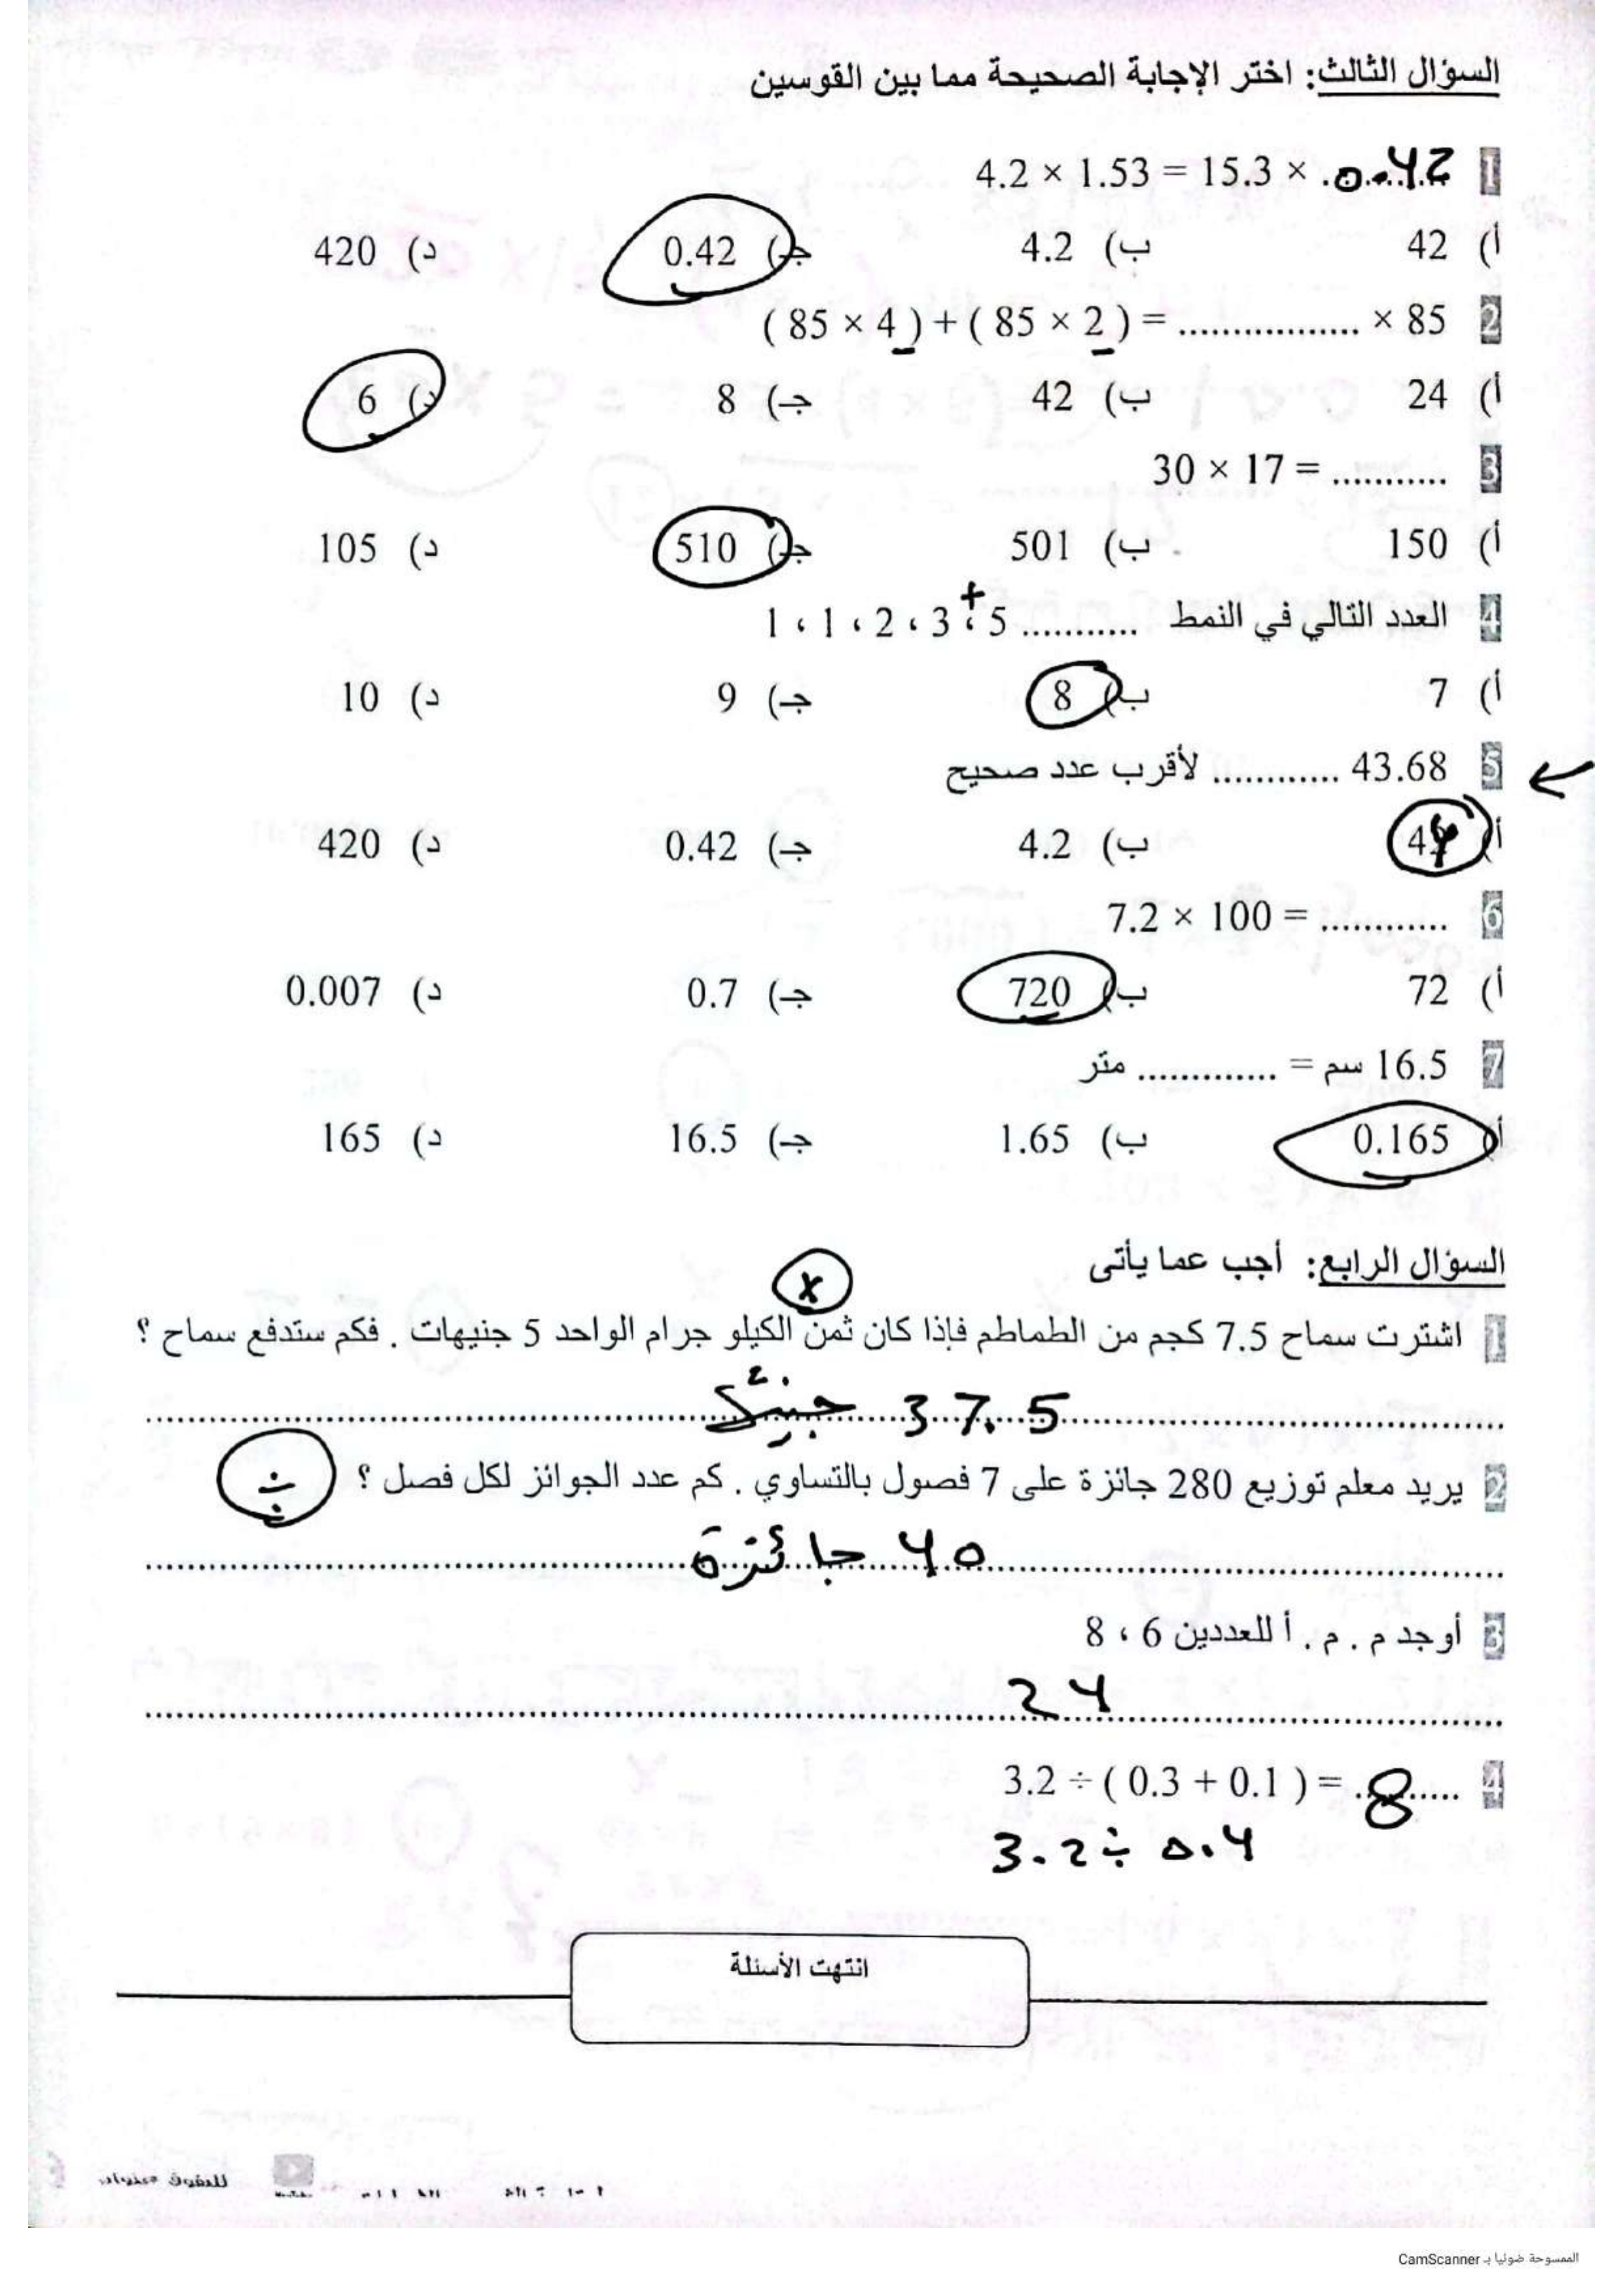 السؤال الثالث: اختر الإجابة الصحيحة مما بين القوسين
1 4.2 × 1.53 = 15.3 × 0.42
أ) 42 ب) 4.2 جـ) 0.42 د) 420
2 ( 85 × 4 ) + ( 85 × 2 ) = ................. × 85
أ) 24 ب) 42 جـ) 8 د) 6
3 30 × 17 = ...........
أ) 150 ب) 501 جـ) 510 د) 105
4 العدد التالي في النمط ........... 1 ، 1 ، 2 ، 3 ، 5 +
أ) 7 ب) 8 جـ) 9 د) 10
5 43.68 ............ لأقرب عدد صحيح
أ) 44 ب) 4.2 جـ) 0.42 د) 420
6 7.2 × 100 = ............
أ) 72 ب) 720 جـ) 0.7 د) 0.007
7 16.5 سم = ............. متر
أ) 0.165 ب) 1.65 جـ) 16.5 د) 165
السؤال الرابع: أجب عما يأتى
×
1 اشترت سماح 7.5 كجم من الطماطم فإذا كان ثمن الكيلو جرام الواحد 5 جنيهات . فكم ستدفع سماح ؟
37.5 جنيهًا
2 يريد معلم توزيع 280 جائزة على 7 فصول بالتساوي . كم عدد الجوائز لكل فصل ؟ ÷
40 جائزة
3 أوجد م . م . أ للعددين 6 ، 8
24
4 3.2 ÷ ( 0.3 + 0.1 ) = 8
3.2 ÷ 0.4
انتهت الأسئلة
الممسوحة ضوئيا بـ CamScanner